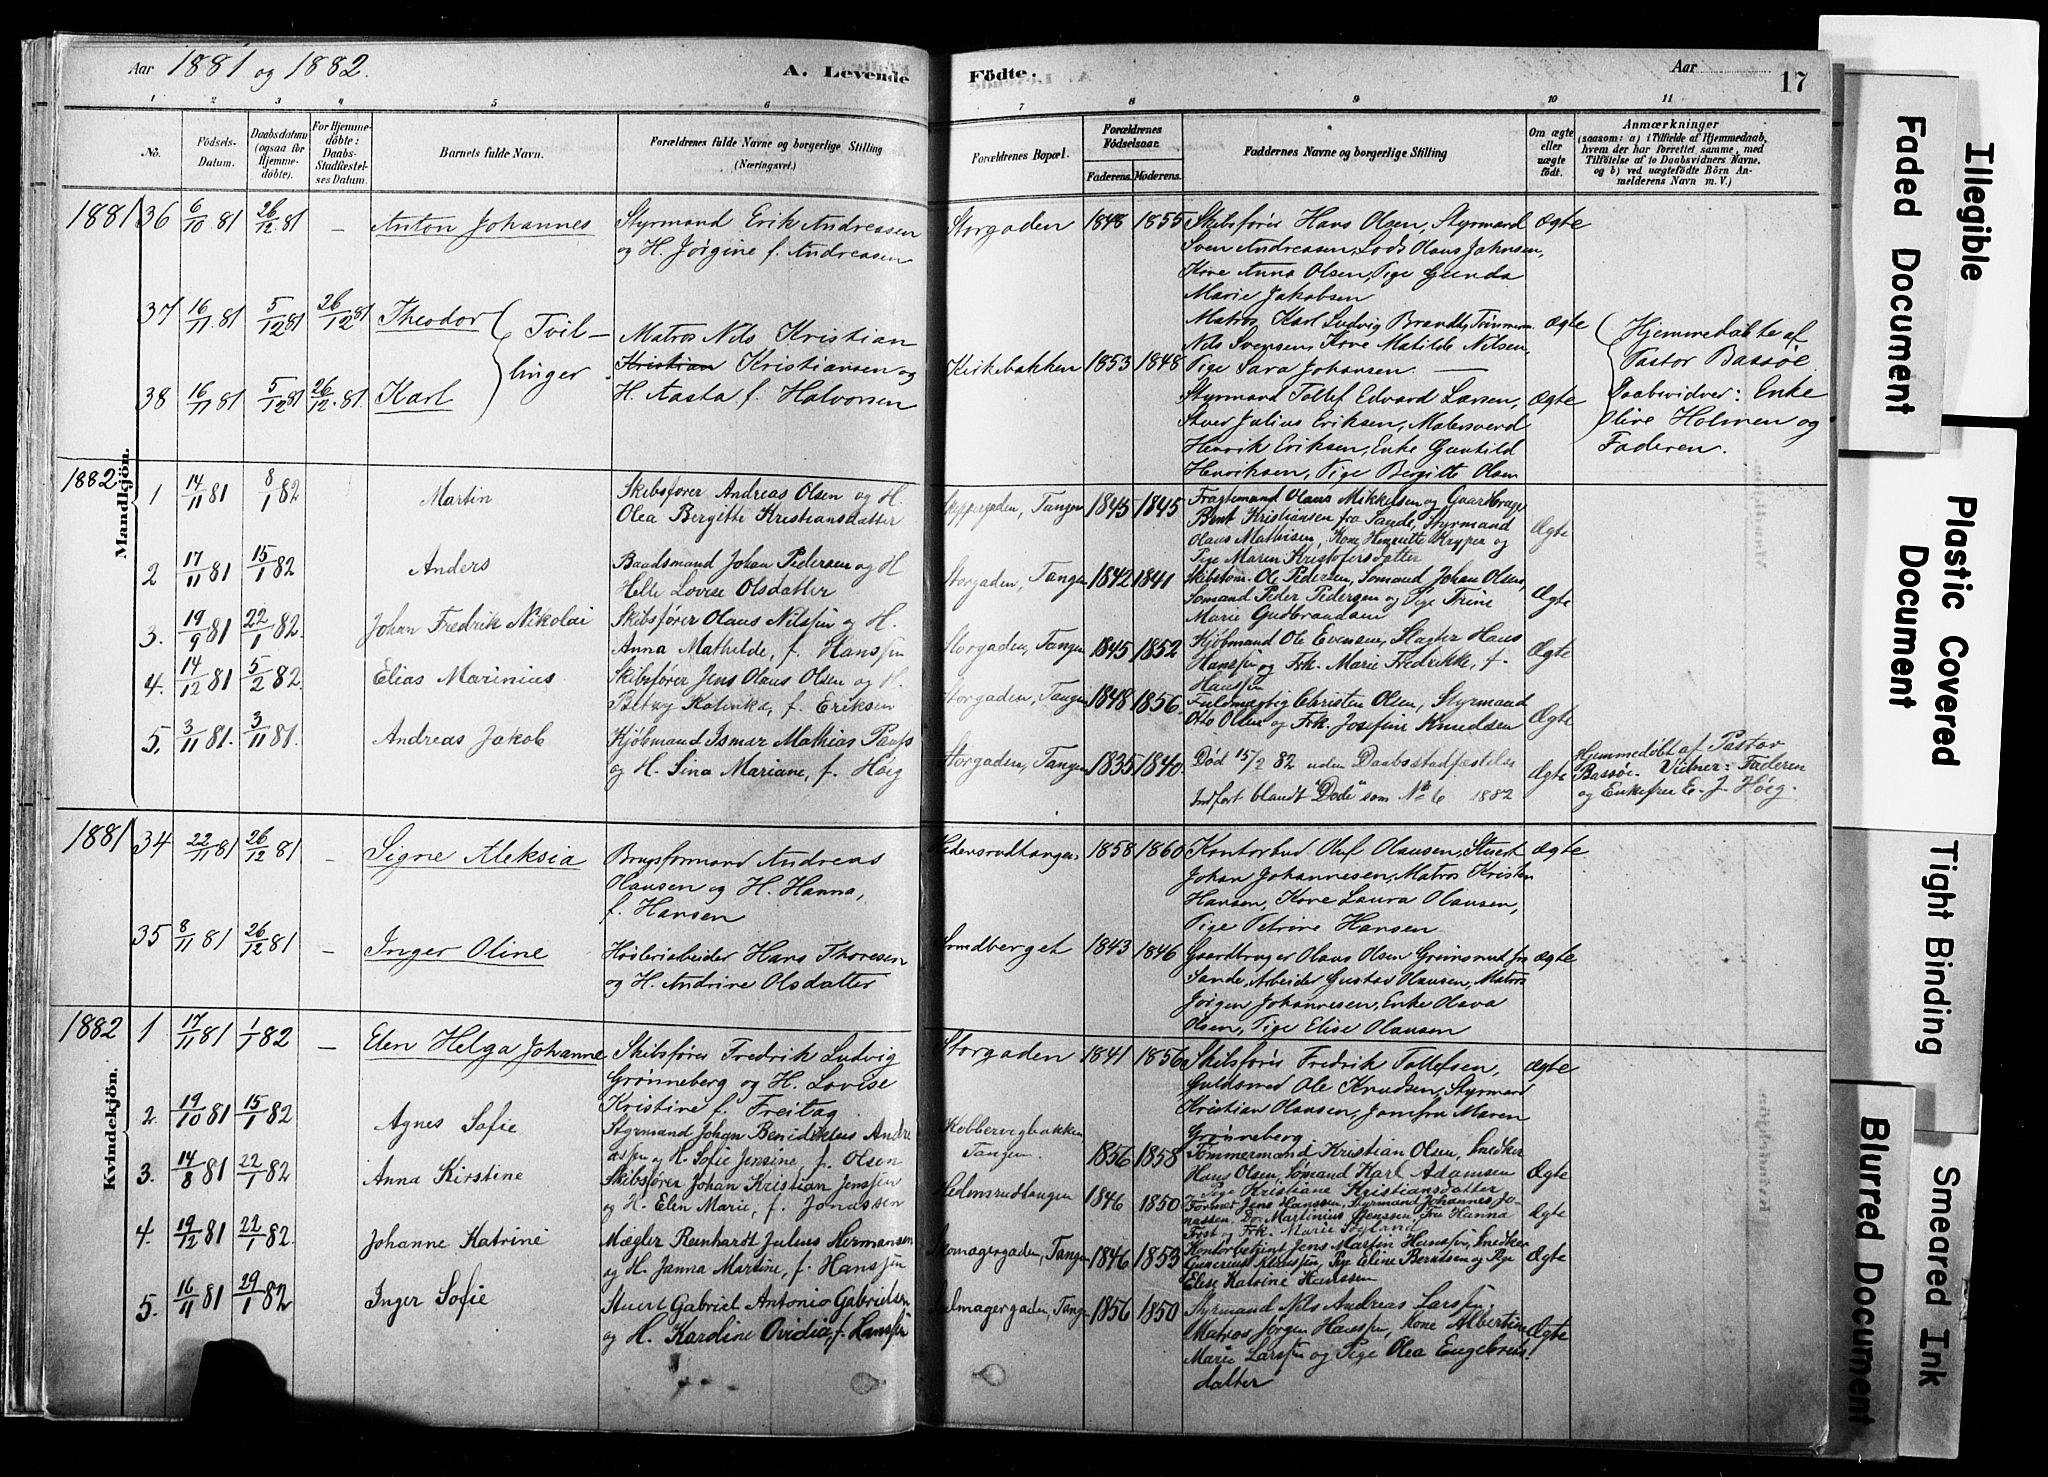 Aar 1881 og 1882.
A. Levende
Födte.
Aar
17
1 2 3 4 5 6
7 8 9 10 11
No.
Födsels-Datum.
Daabsdatum (ogsaa for Hjemme-döbte).
For Hjemme-döbte: Daabs-Stadfæstel-ses Datum.
Barnets fulde Navn.
Forældrenes fulde Navne og borgerlige Stilling
(Næringsvei.)
Forældrenes Bopæl.
Forældrenes Födselsaar.
Faderens. Moderens.
Faddernes Navne og borgerlige Stilling
Om ægte eller uægte födt.
Anmærkninger
(saasom: a) i Tilfælde af Hjemmedaab,
hvem der har forrettet samme, med
Tilföielse af to Daabsvidners Navne.
og b) ved uægtefödte Börn An-
melderens Navn m. V.)
Mandkjön.
1881 36 6/10 81 26/12 81 – Anton Johannes
Styrmand Erik Andreassen
og H. Jørgine f. Andreasen
Storgaden 1848 1855
Skibsfører Hans Olsen, Styrmand
Sven Andreasen, Lods Olaus Johnsen,
Kone Anna Olsen, Pige Gunda
Marie Jakobsen
Ægte
37 16/11 81 5/12 81 26/12 81 Theodor
Tvil-
linger
38 16/11 81 5/12 81 26/12 81 Karl
Matros Nils Kristian
Kristian Kristiansen og
H. Aasta f. Halvorsen
Kirkebakken 1853 1848
Matros Karl Ludvig Brandt,
Nils Svensen, Kone Matilde Nilsen,
Pige Sara Johansen. —
Ægte
Styrmand Tollef Edvard Larsen,
Stuer Julius Eriksen,
Henrik Eriksen, Enke Gunhild
Henriksen, Pige Bergitte Olsen
Ægte
Hjemmedøbte af
Pastor Bassøe.
Daabsvidner: Enke
Oline Holmen og
Faderen.
1882 1 14/11 81 8/1 82 Martin
Skibsfører Andreas Olsen og H.
Olea Bergitte Kristiansdatter
Skippergaden, Tangen 1845 1845
Fragtemand Olaus Mikkelsen og Gaardbruger
Bent Kristiansen fra Sande, Styrmand
Olaus Mathisen, Kone Henriette Kryper og
Pige Maren Kristofersdatter
Ægte
2 17/11 81 15/1 82 Anders
Baadsmand Johan Pedersen og H
Helle Lovise Olsdatter
Storgaden, Tangen 1842 1841
Skibstøm. Ole Pedersen, Sømand Johan Olsen,
Sømand Peder Pedersen og Pige Trine
Marie Gudbrandsen
Ægte
3. 19/9 81 22/1 82. Johan Fredrik Nikolai
Skibsfører Olaus Nilssen og H.
Anna Mathilde, f. Hanssen
Storgaden, Tangen 1845 1852
Kjøbmand Ole Evensen, Slagter Hans
Hanssen og Frk. Marie Fredrikke, f.
Hanssen
Ægte
4. 14/12 81 5/2 82. Elias Marinius
Skibsfører Jens Olaus Olsen og H.
Betsy Katinka, f. Eriksen
Storgaden, Tangen 1848 1856.
Fuldmægtig Christen Olsen, Styrmand
Otto Olsen og Frk. Josefine Knudsen
Ægte
5. 3/11 81. 3/11 81. Andreas Jakob
Kjøbmand Ismar Mathias
og H. Sina Mariane, f. Høeg
Storgaden, Tangen 1835 1840.
Død 15/2 82 uden Daabsstadfæstelse
Indført blandt "Døde" som No 6 1882
Ægte
Hjemmedøbt af Pastor
Bassøe. Vidner: Faderen
og Enkefru E. J. Høeg.
Kvindekjön.
1881 34 22/11 81 26/12 81 – Signe Aleksia
Brugsformand Andreas
Olausen og H. Hanna,
f. Hansen
Hedensrudtangen 1858 1860
Kontorbud Oluf Olausen, Stuert
Johan Johannesen, Matros Kristen
Hansen, Kone Laura Olausen,
Pige Petrine Hansen
Ægte
35 8/11 81 26/12 81 – Inger Oline
Høvleriarbeider Hans Thoresen
og H. Andrine Olsdatter
Smedberget 1843 1846
Gaardbruger Olaus Olsen Grimsrud fra
Sande, Arbeider Gustav Olausen, Matros
Jørgen Johannesen, Enke Olava
Olsen, Pige Elise Olausen
Ægte
1882 1 17/11 81 1/1 82 – Elen Helga Johanne
Skibsfører Fredrik Ludvig
Grønneberg og H. Lovise
Kristine f. Freitag
Storgaden 1841 1856
Skibsfører Fredrik Tollefsen,
Guldsmed Ole Knudsen, Styrmand
Kristian Olausen, Jomfru Maren
Grønneberg
Ægte
2. 19/10 81 15/1 82 Agnes Sofie
Styrmand Johan Benidiktus Andre
assen og H. Sofie Jensine, f. Olsen
Kobbervigbakken
Tangen 1856 1858
Tømmermand Kristian Olsen, Snedker
Hans Olsen, Sømand Karl Adamsen
Pige Kristiane Kristiansdatter
Ægte
3. 14/8 81 22/1 82 Anna Kirstine
Skibsfører Johan Kristian Jenssen
og H. Elen Marie, f. Jonassen
Hedensrudtangen 1846 1850
Former Jens Hanssen, Styrmand Johannes Jo-
nassen, Do. Martinius Jenssen, Fru Hanna
Først og Frk. Marie Søyland
Ægte
4. 19/12 81 22/1 82. Johanne Katrine
Mægler Reinhardt Julius Hermansen
og H. Janna Martine, f. Hanssen
Skomagergaden, Tangen 1846 1853
Kontorbetjent Jens Martin Hanssen, Snedker
Gunerius Klaussen, Pige Eline Berntsen og Pige
Elise Katrine Hanssen
Ægte
5. 16/11 81 29/1 82 Inger Sofie
Stuert Gabriel Antonio Gabrielsen
og H. Karoline Ovidia, f. Hanssen
Salmagergaden, Tangen 1856 1850
Styrmand Nils Andreas Larssen,
Matros Jørgen Hanssen, Kone Albertine
Marie Larssen og Pige Olea Engebrets-
datter
Ægte
Illegible
Faded Document
Plastic Covered
Document
Tight Binding
Blurred Document
Smeared Ink